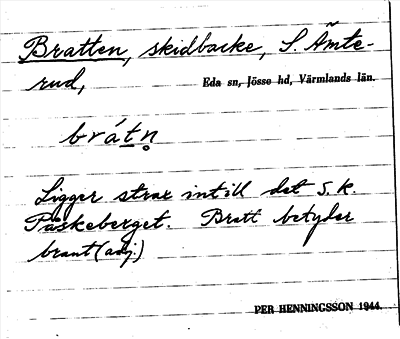 Bratten, skidbacke, S. Åmte-
rud,
Eda sn, Jösse hd, Värmlands län.
brátn̥
Ligger strax intill det s.k.
Påskeberget. Bratt betyder
brant (adj.)
PER HENNINGSSON 1944.